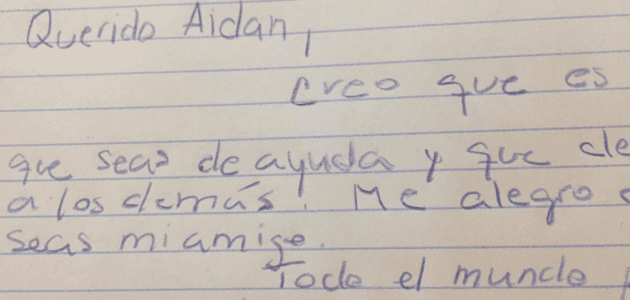 Querido Aidan,
creo que es
que seas de ayuda y que
a los demás. Me alegro
seas mi amigo.
Todo el mundo